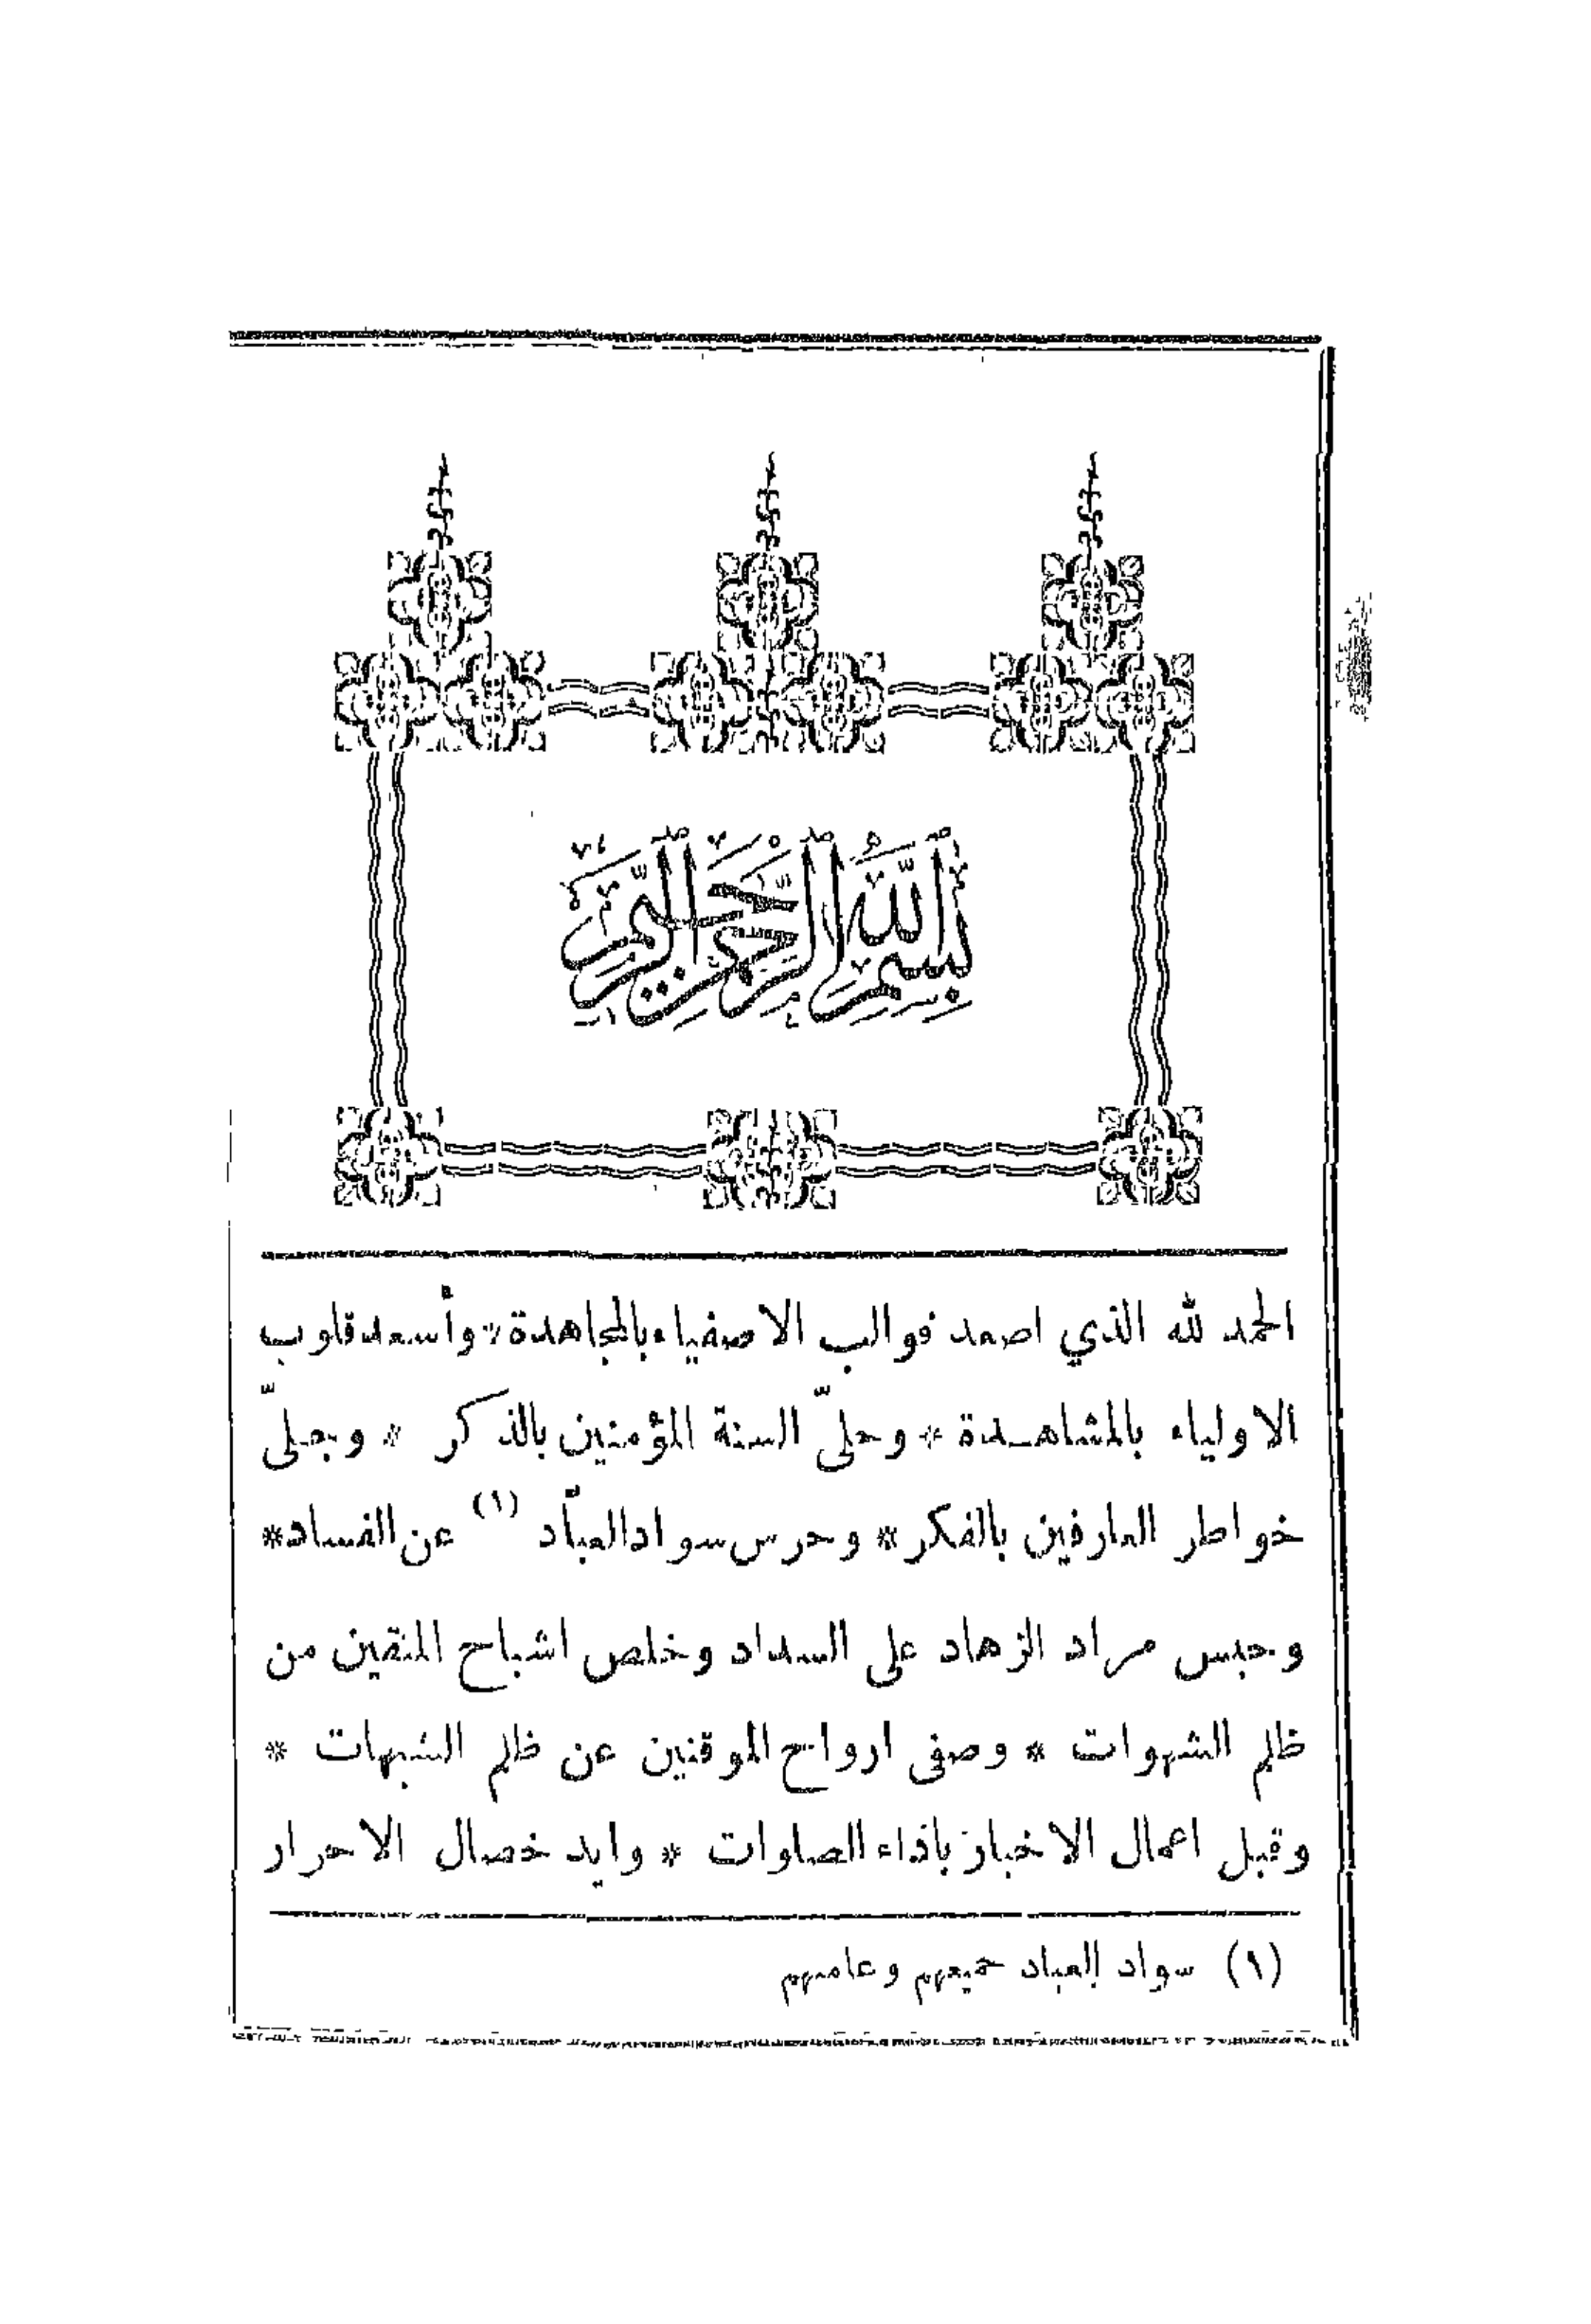 بسم الله الرحمن الرحيم
الحمد لله الذي اصعد قوالب الاصفياء بالمجاهدة * وأسعد قلوب
الاولياء بالمشاهدة * وحلىّ السنة المؤمنين بالذكر * وجلىّ
خواطر العارفين بالفكر * وحرس سواد العبّاد (١) عن الفساد *
وحبس مراد الزهاد على السداد وخلص اشباح المتقين من
ظلم الشهوات * وصفى ارواح الموقنين عن ظلم الشبهات *
وقبل اعمال الاخيار باداء الصلوات * وايد خصال الاحرار
(١) سواد العباد جميعهم وعامتهم